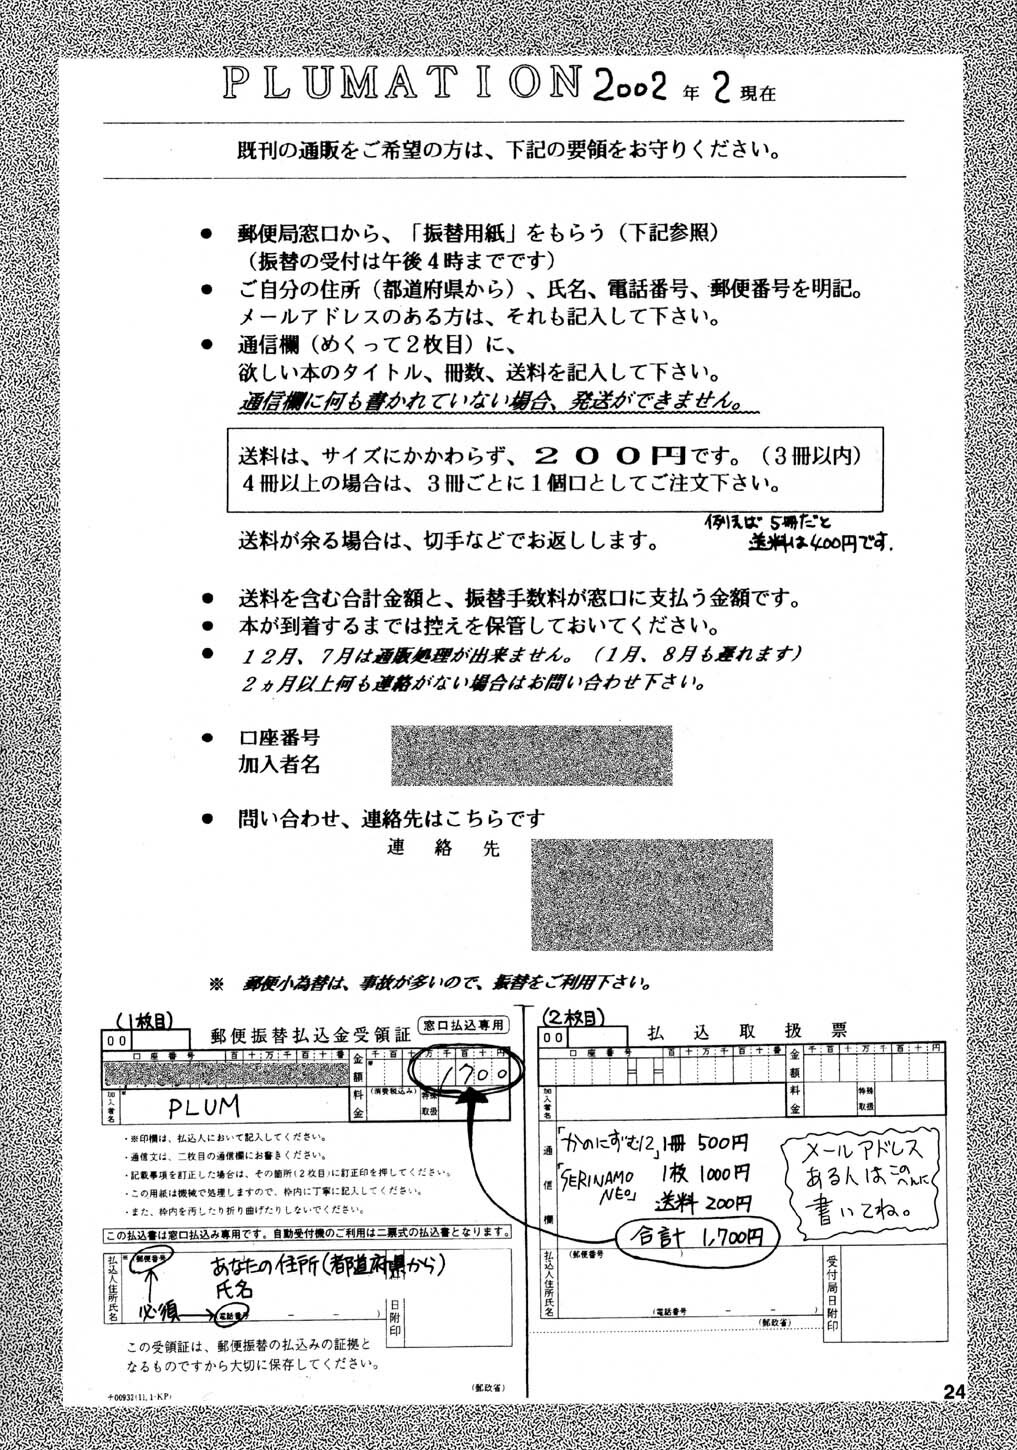 PLUMATION 2002年 2現在
既刊の通販をご希望の方は、下記の要領をお守りください。
● 郵便局窓口から、「振替用紙」をもらう（下記参照）
（振替の受付は午後４時までです）
● ご自分の住所（都道府県から）、氏名、電話番号、郵便番号を明記。
メールアドレスのある方は、それも記入して下さい。
● 通信欄（めくって２枚目）に、
欲しい本のタイトル、冊数、送料を記入して下さい。
通信欄に何も書かれていない場合、発送ができません。
送料は、サイズにかかわらず、２００円です。（３冊以内）
４冊以上の場合は、３冊ごとに１個口としてご注文下さい。
例えば 5冊だと
送料は400円です.
送料が余る場合は、切手などでお返しします。
● 送料を含む合計金額と、振替手数料が窓口に支払う金額です。
● 本が到着するまでは控えを保管しておいてください。
● １２月、７月は通販処理が出来ません。（１月、８月も遅れます）
２ヵ月以上何も連絡がない場合はお問い合わせ下さい。
● 口座番号
加入者名
● 問い合わせ、連絡先はこちらです
連 絡 先
※ 郵便小為替は、事故が多いので、振替をご利用下さい。
(1枚目)
00
郵便振替払込金受領証
窓口払込専用
口座番号 百十万千百十番
金額
千百十万千百十円
1700
加入者名
PLUM
料金
(消費税込み)
特殊取扱
・※印欄は、払込人において記入してください。
・通信文は、二枚目の通信欄にお書きください。
・記載事項を訂正した場合は、その箇所(２枚目)に訂正印を押してください。
・この用紙は機械で処理しますので、枠内に丁寧に記入してください。
・また、枠内を汚したり折り曲げたりしないでください。
この払込書は窓口払込み専用です。自動受付機のご利用は二票式の払込書となります。
払込人住所氏名
※
郵便番号
あなたの住所(都道府県から)
氏名
必須
(電話番号 － － )
日附印
この受領証は、郵便振替の払込みの証拠と
なるものですから大切に保存してください。
(郵政省)
(2枚目)
00
払込取扱票
口座番号 百十万千百十番
金額
千百十万千百十円
加入者名
料金
特殊取扱
通信欄
「かのにずむ12」1冊 500円
「SERINAMO NEO」 1枚 1000円
送料 200円
合計 1,700円
メールアドレス
ある人はこのへんに
書いてね。
払込人住所氏名
(郵便番号 )
(電話番号 － － )
(郵政省)
受付局日附印
24